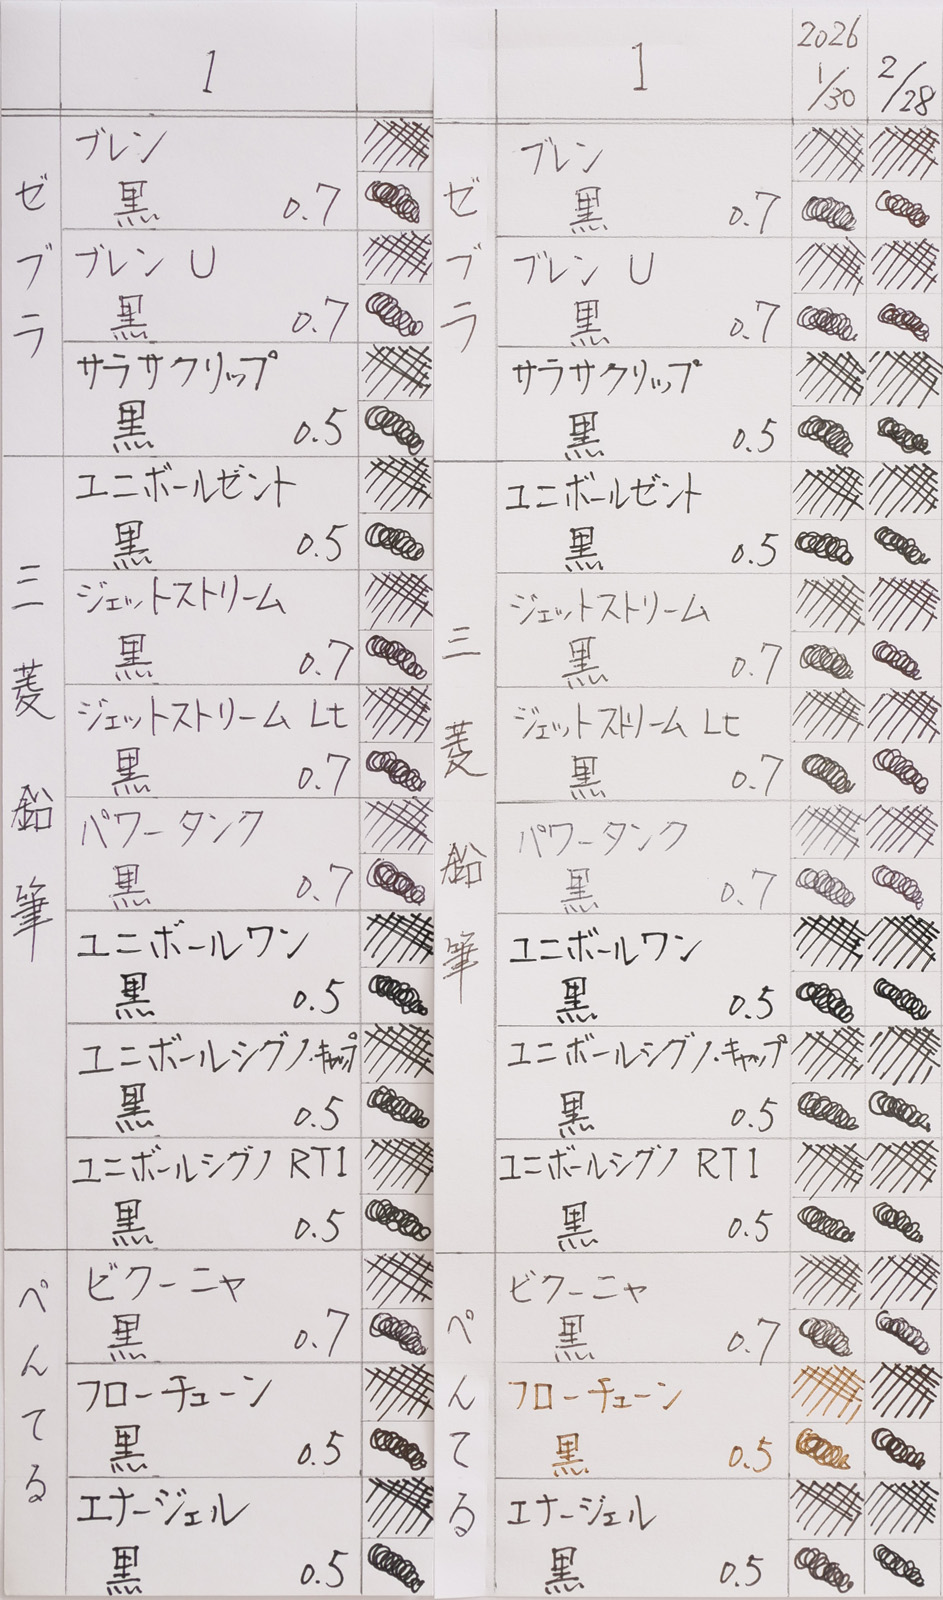 1
ゼブラ
ブレン
黒 0.7
ブレン U
黒 0.7
サラサクリップ
黒 0.5
三菱鉛筆
ユニボールゼント
黒 0.5
ジェットストリーム
黒 0.7
ジェットストリーム Lt
黒 0.7
パワータンク
黒 0.7
ユニボールワン
黒 0.5
ユニボールシグノ・キャップ
黒 0.5
ユニボールシグノ RT1
黒 0.5
ぺんてる
ビクーニャ
黒 0.7
フローチューン
黒 0.5
エナージェル
黒 0.5
1
2026
1/30
2/28
ゼブラ
ブレン
黒 0.7
ブレン U
黒 0.7
サラサクリップ
黒 0.5
三菱鉛筆
ユニボールゼント
黒 0.5
ジェットストリーム
黒 0.7
ジェットストリーム Lt
黒 0.7
パワータンク
黒 0.7
ユニボールワン
黒 0.5
ユニボールシグノ・キャップ
黒 0.5
ユニボールシグノ RT1
黒 0.5
ぺんてる
ビクーニャ
黒 0.7
フローチューン
黒 0.5
エナージェル
黒 0.5